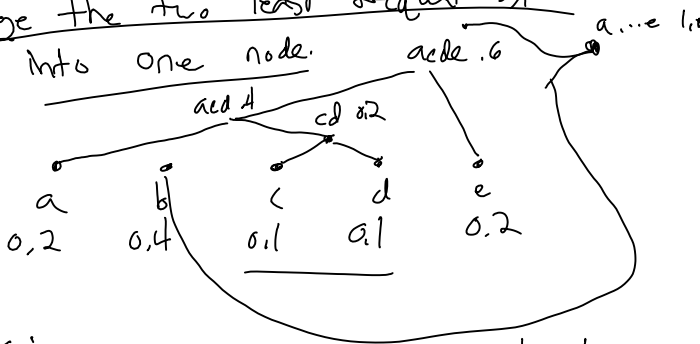 the two least
into one node.
acde .6
a...e
acd .4
cd 0.2
a b c d e
0,2 0,4 0,1 0,1 0.2